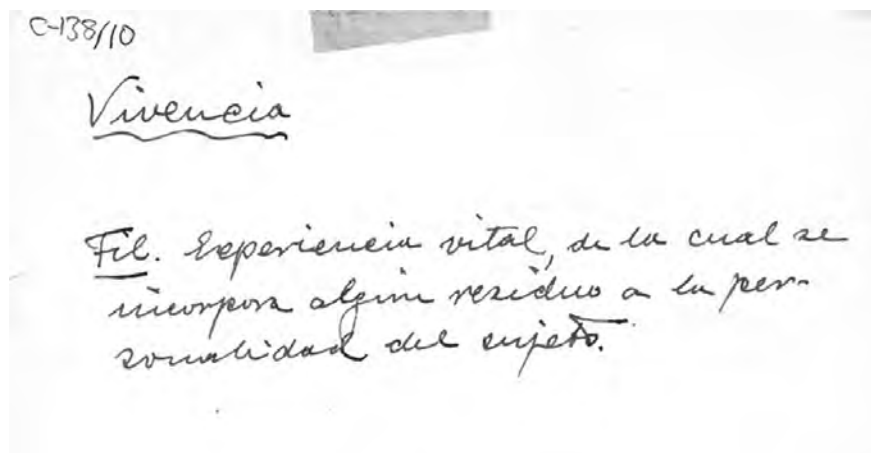 C-138/10
Vivencia
Fil. Experiencia vital, de la cual se
incorpora algún residuo a la per-
sonalidad del sujeto.